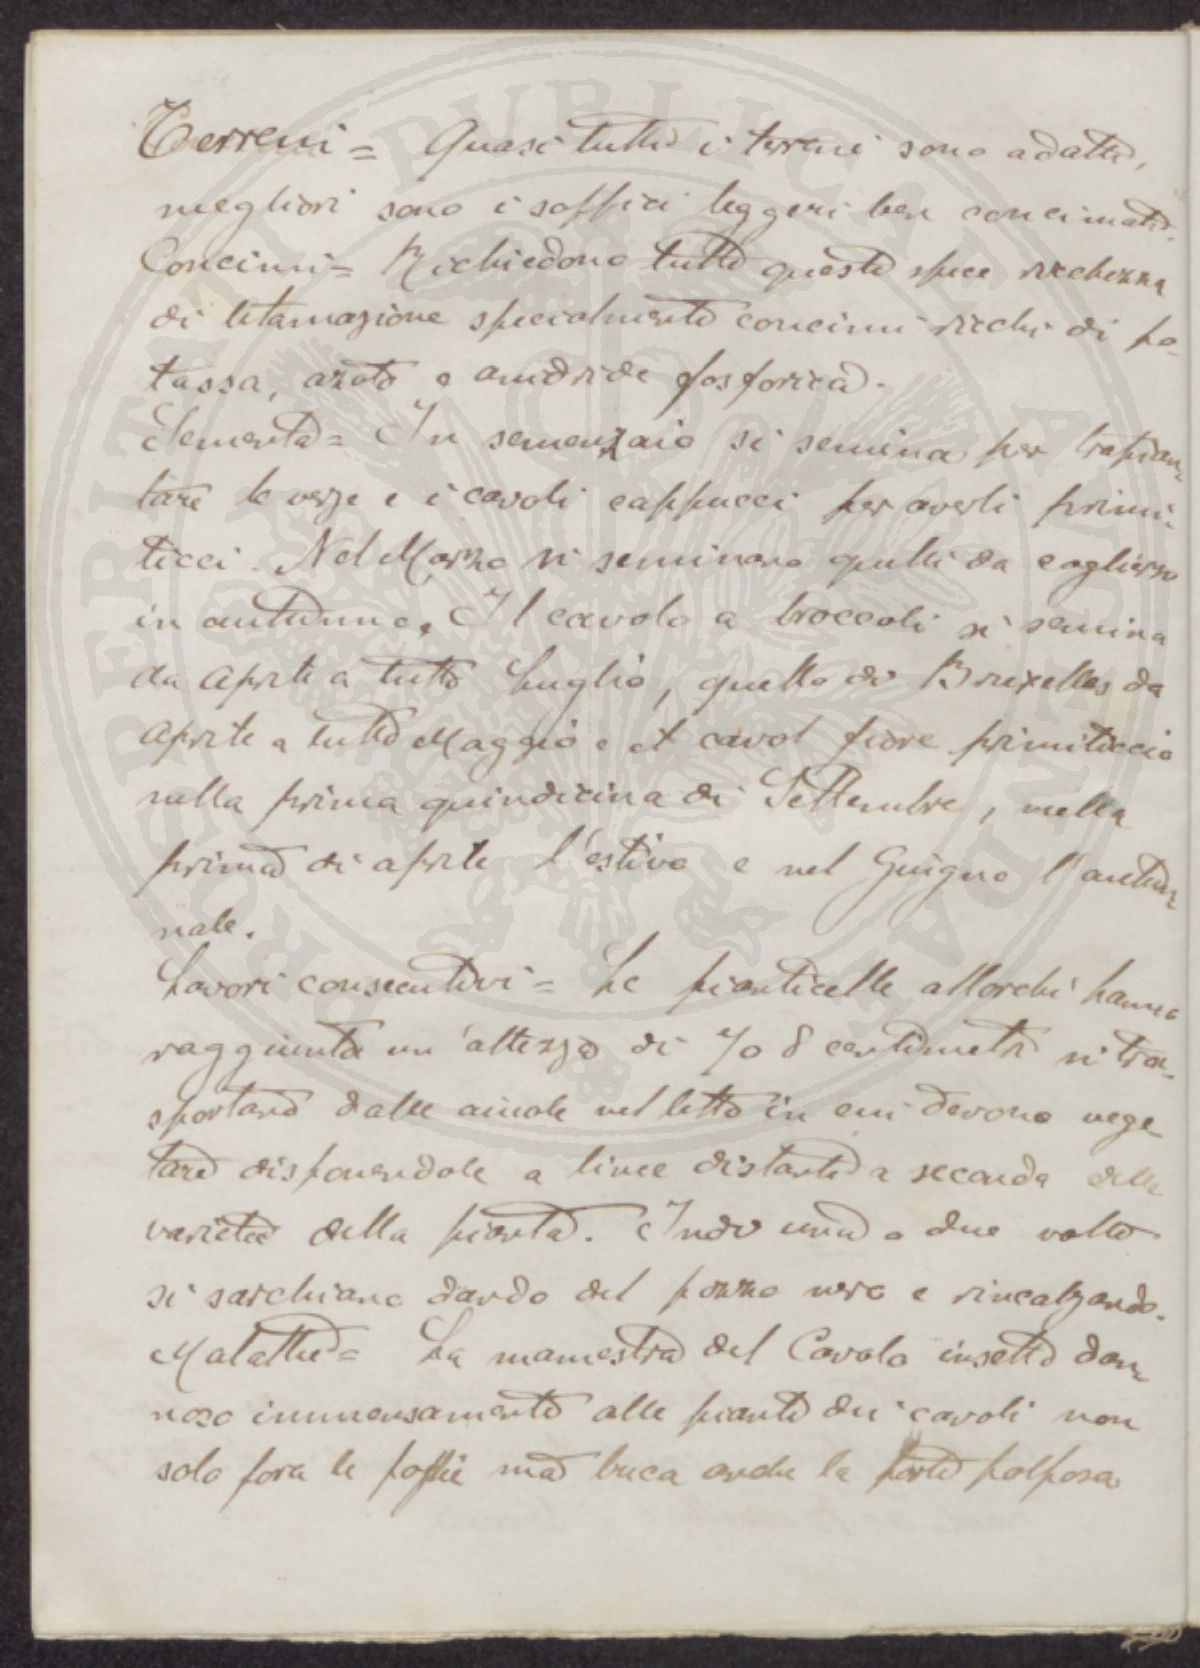 Terreni = Quasi tutti i terreni sono adatti,
megliori sono i soffici leggeri ben concimati.
Concimi = Richiedono tutte queste specie ricchezza
di letamazione specialmente concimi ricchi di po-
tassa, azoto e anidride fosforica.
Sementa = In semenzaio si semina per trapian-
tare le verze e i cavoli cappucci per averli primi-
ticci. Nel Marzo si seminano quelli da cogliersi
in autunno. Il cavolo a broccoli si semina
da Aprile a tutto Luglio, quello di Bruxelles da
Aprile a tutto Maggio e il cavol fiore primiticcio
nella prima quindicina di Settembre, nella
prima di aprile l'estivo e nel Guigno l'autun-
nale.
Lavori consecutivi = Le pianticelle allorchè hanno
raggiunta un'altezza di 7 o 8 centimetri si tra-
sportano dalle aiuole nel letto in cui devono vege
tare disponendole a linee distanti a seconda delle
varietà della pianta. Indi una o due volte
si sarchiano dando del pozzo nero e rincalzando.
Malattie = La mamestra del Cavolo insetto dan-
noso immensamente alle piante dei cavoli non
solo fora le foglie ma buca anche la parte polposa
PROSPERITATI PUBLICAE AUGENDAE